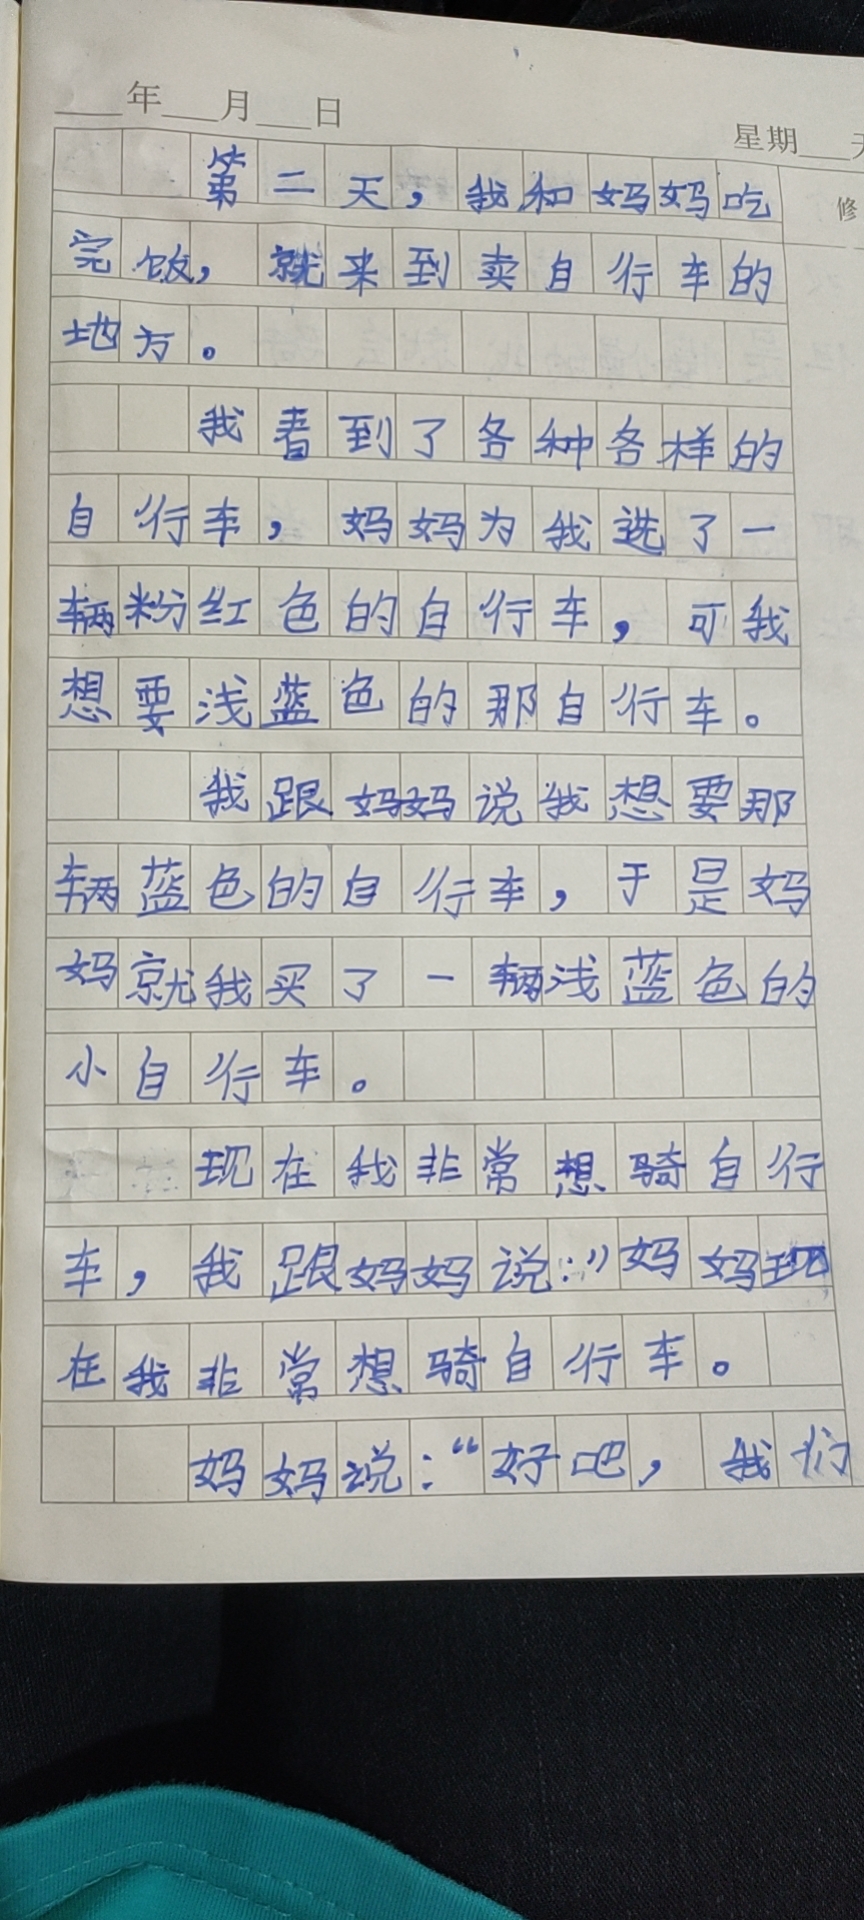 ___年___月___日
星期___天
第二天，我和妈妈吃
修
完饭，就来到卖自行车的
地方。
我看到了各种各样的
自行车，妈妈为我选了一
辆粉红色的自行车，可我
想要浅蓝色的那自行车。
我跟妈妈说我想要那
辆蓝色的自行车，于是妈
妈就我买了一辆浅蓝色的
小自行车。
现在我非常想骑自行
车，我跟妈妈说：”妈妈现
在我非常想骑自行车。
妈妈说：“好吧，我们